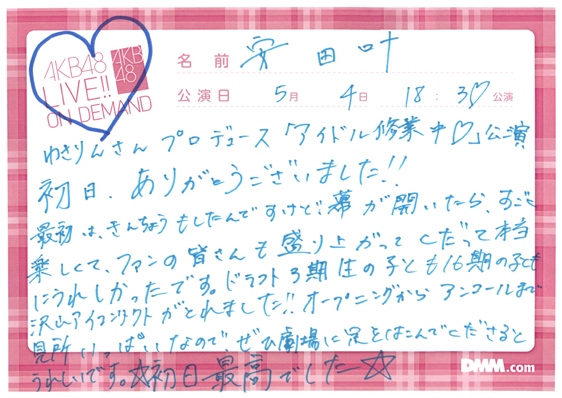 AKB48
LIVE!!
ON DEMAND
AKB
48
名前 安田叶
公演日 5月 4日 18:30公演
ゆきりんさんプロデュース「アイドル修業中♡」公演
初日、ありがとうございました!!
最初は、きんちょうもしたんですけど、幕が開いたら、すごく
楽しくて、ファンの皆さんも盛り上がってくださって本当
にうれしかったです。ドラフト3期生の子とも16期の子とも
沢山アイコンタクトがとれました!!オープニングからアンコールまで
見所いっぱいなので、ぜひ劇場に足をはこんでくださると
うれしいです。☆初日最高でした☆
DMM.com